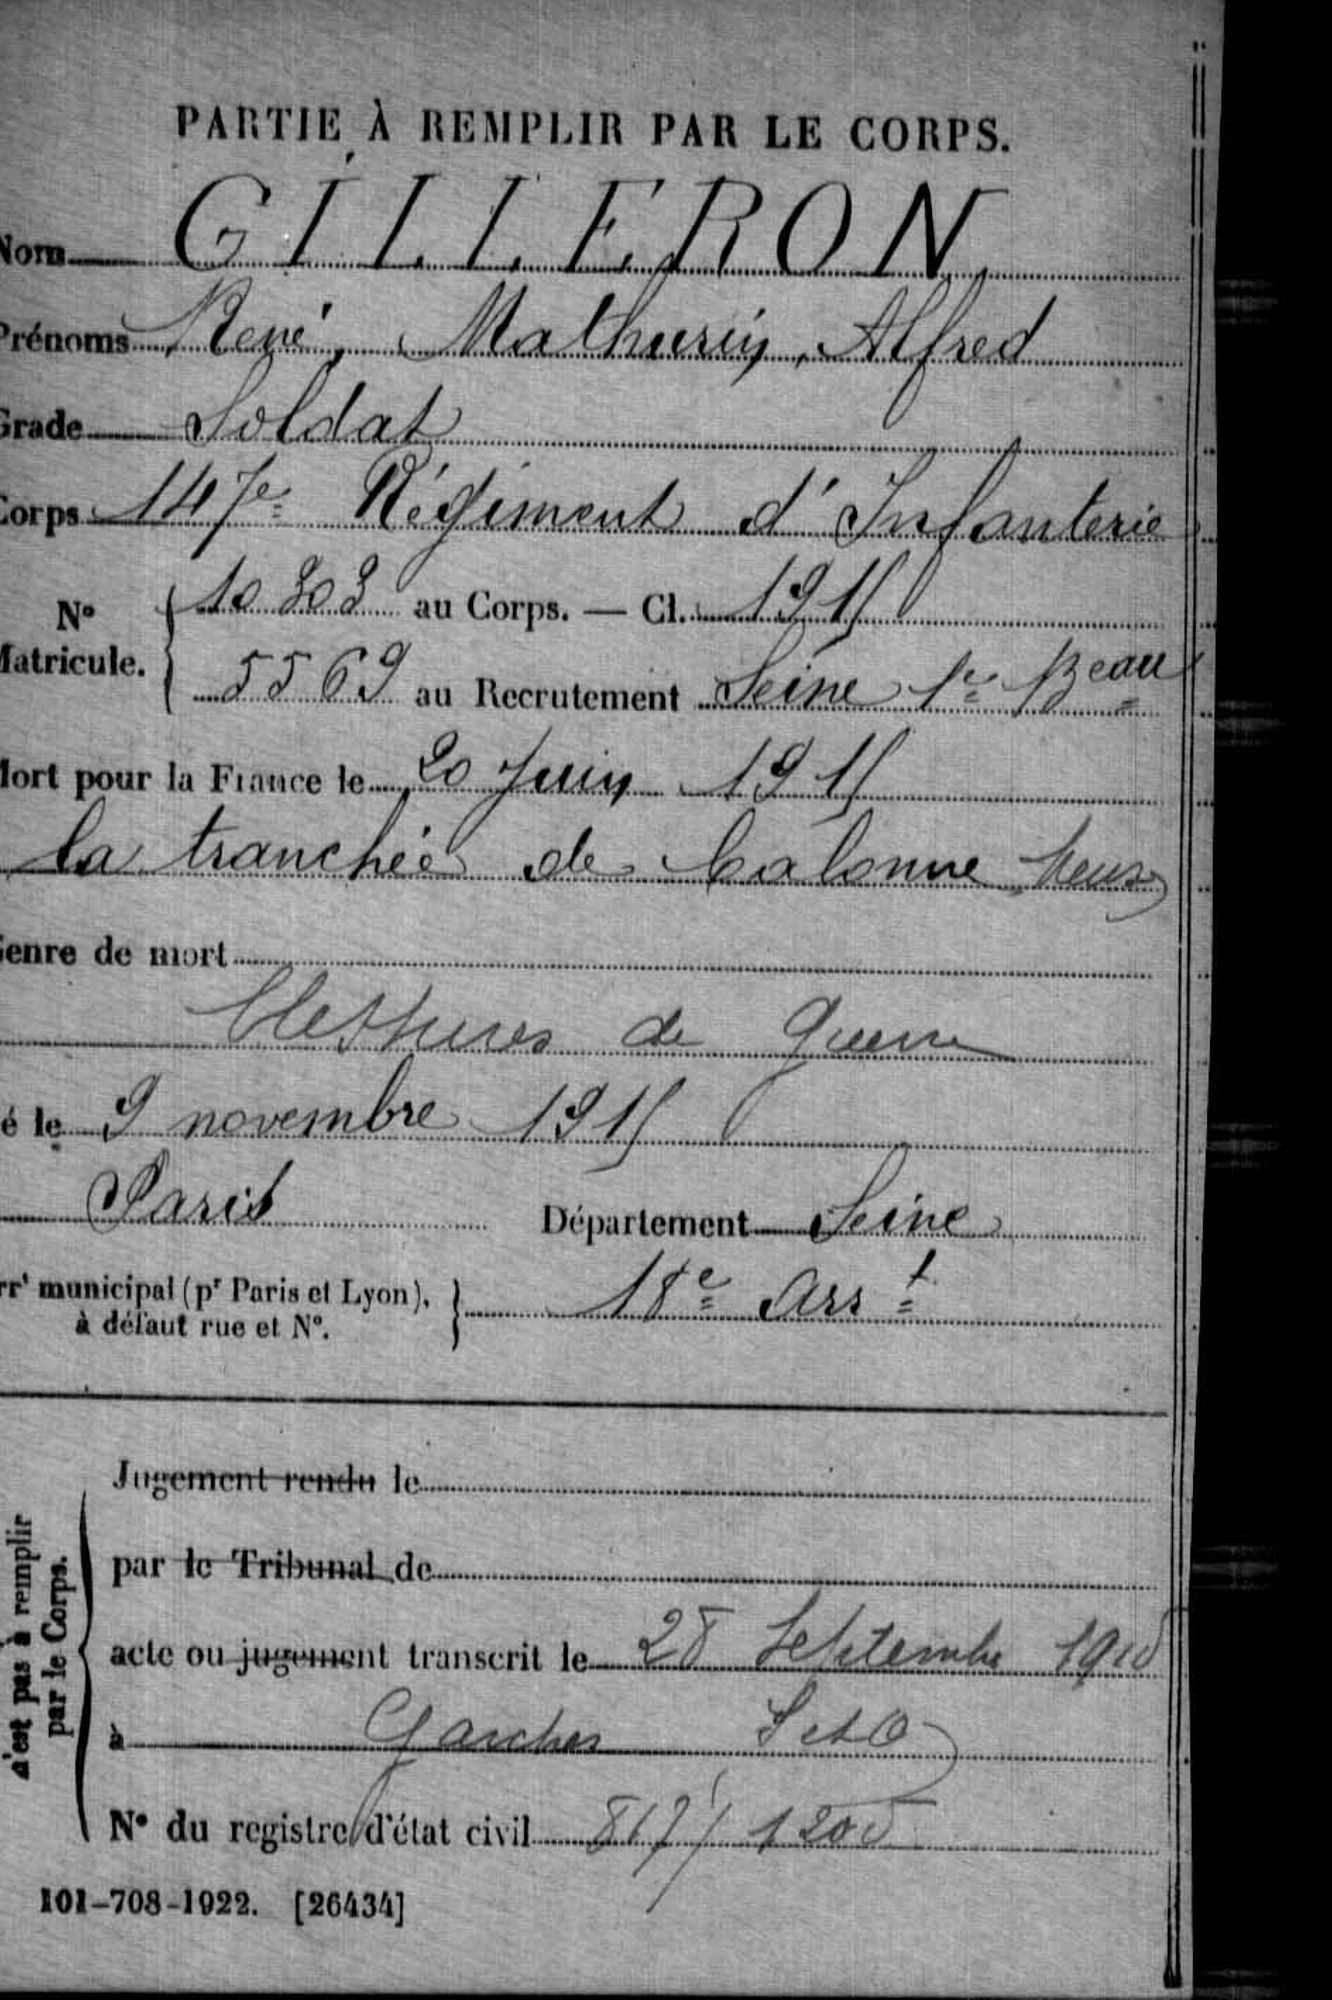 PARTIE À REMPLIR PAR LE CORPS.
Nom GILLERON
Prénoms René, Mathurin, Alfred
Grade Soldat
Corps 147e Régiment d'Infanterie
No Matricule. { 10303 au Corps. — Cl. 1915
5569 au Recrutement Seine 1er Beau
Mort pour la France le 20 Juin 1915
la tranchée de Calonne Meuse
Genre de mort
blessures de guerre
é le 9 novembre 1915
Paris Département Seine
rrt municipal (pr Paris et Lyon), à défaut rue et No. } 18e Arrt
n'est pas à remplir par le Corps.
Jugement rendu le
par le Tribunal de
acte ou jugement transcrit le 28 Septembre
à Garches S et O
No du registre d'état civil
101-708-1922. [26434]